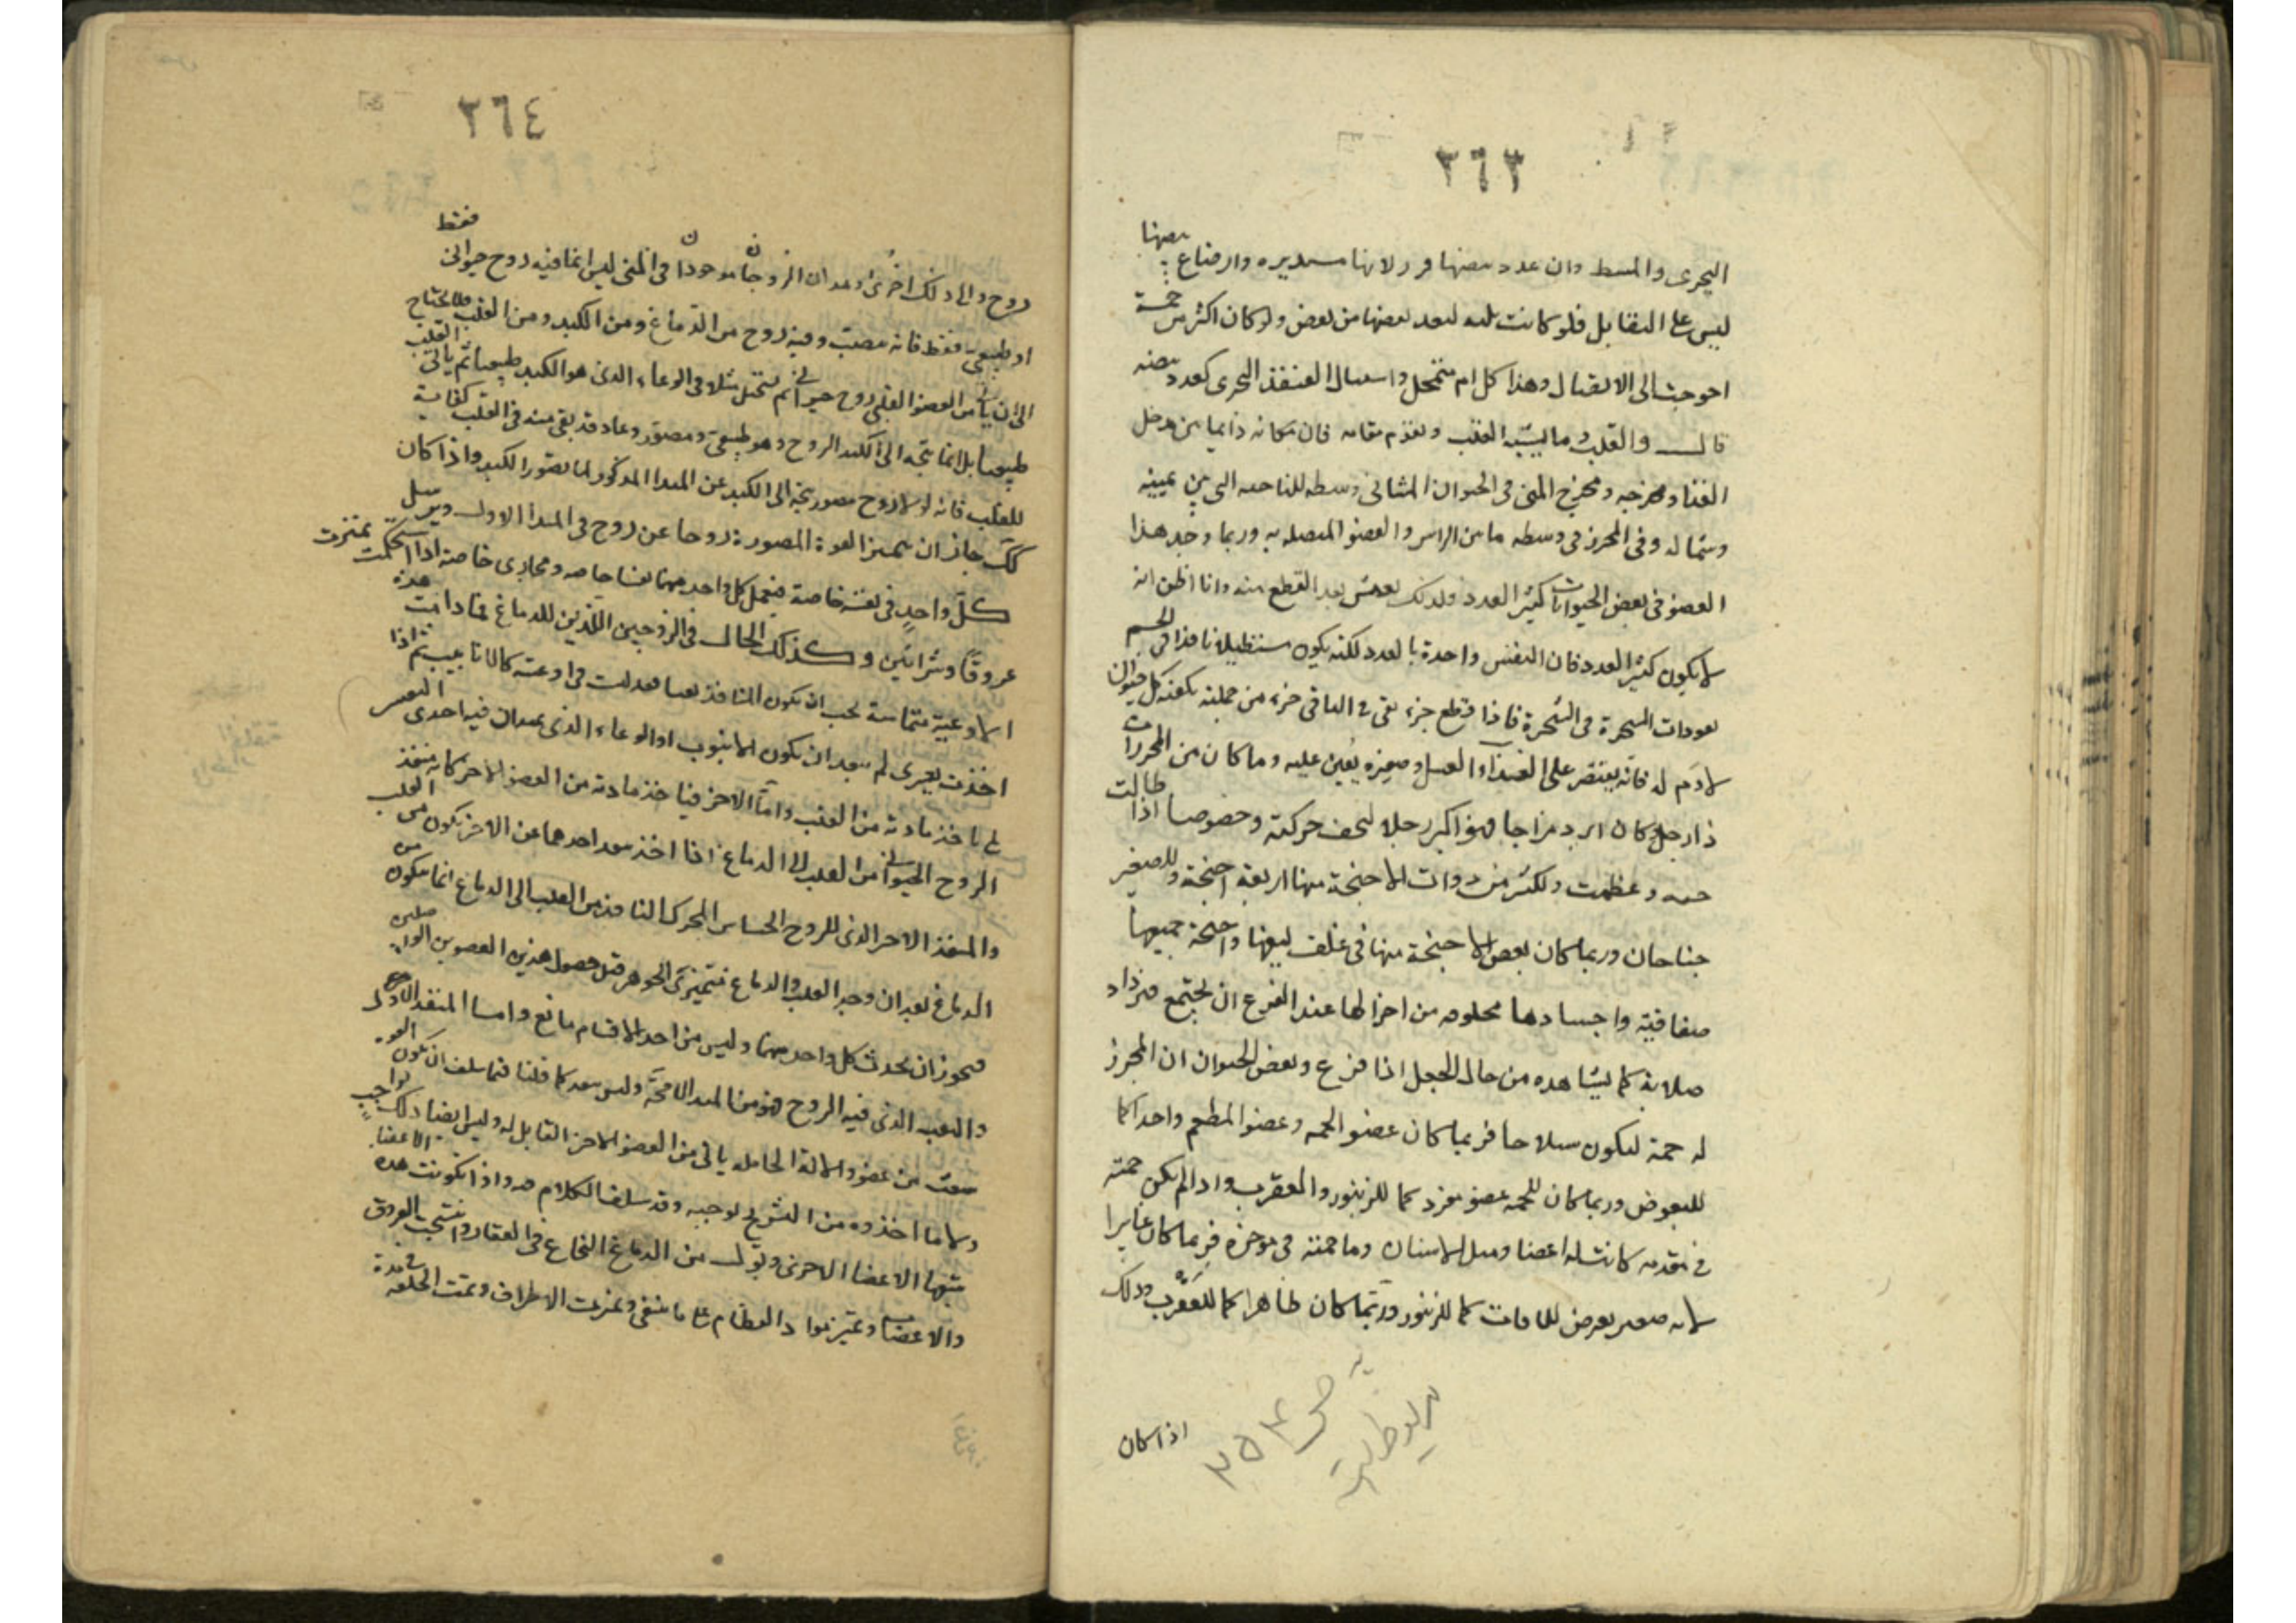 ٣٦٣
البحرى والمشط وان عدد بيضها فرد لانها مستديره وارضاع بيضها
ليس على التقابل فلو كانت ثلثه لبعد بعضها من بعض ولو كان اكثر من خمسة
احوجت الى الاتصال وهذا كلام متمحل واستعمال القنفذ البحرى كعدد بيضه
قال والقلب وما يشبه القلب ويقوم مقامه فان مكانه دايما بين مدخل
الغذاء ومخرجه ومخرج المنى فى الحيوان المشائى وسطه للناحيه التى بين يمينه
وشماله وفى المحرز فى وسطه ما بين الراس والعضو المتصله به وربما وجد هذا
العضو فى بعض الحيوانات كثير العدد ولذلك يعيش بعد القطع منه وانا اظن انه
لا يكون كثير العدد فان النفس واحدة بالعدد لكنه يكون مستطيلا نافذا فى الجسم
نفوذات الشجرة فى الشجرة فاذا قطع جزء بقى فى الباقى جزء من جملته يكفيه كل حيوان
لا دم له فانه يقتصر على الغذاء القليل وصغره يعين عليه وما كان من المحرزات
ذا رجل وكان ابرد مزاجا فهو اكبر رجلا ليخف حركته وخصوصا اذا طالت
جثته وعظمت ولكثير من ذوات الاجنحة منها اربعة اجنحة وللصغير
جناحان وربما كان بعض الاجنحة منها فى غلف ليقيها واجنحة جميعها
صفاقية واجسادها محلومه من اجزائها عند الفزع ان يجتمع فيزداد
صلابة كما يشاهده من حال الجعل اذا فزع وبعض الحيوان ان المحرز
له حمة ليكون سلاحا فربما كان عضو الحمه وعضو المطعم واحدا كما
للبعوض وربما كان للحمه عضو مفرد كما للزنبور والعقرب واذا لم يكن حمته
فى مقدمه كانت له اعضا ومثل الاسنان وما حمته فى موخره فربما كان غايرا
لانه صغير يعرض للافات كما للزنبور وربما كان ظاهرا كما للعقرب وذلك
اذا كان
٣٥٣
٣٦٤
روح والى ذلك اخرى وبعد ان الزوجان موجودان فى المنى ليس انما فيه روح حيوانى فقط
او طبيعى فقط فانه مصبّ وفيه روح من الدماغ ومن الكبد ومن القلب فلا يحتاج
الى ان ياتى من العضو القلبى روح حيوانى ثم يستحيل مثلا فى الوعاء الذى هو الكبد طبيعيا ثم ياتى القلب
طبيعيا بل انما يتجه الى الكبد الروح وهو طبيعى ومصور وعاد قد بقى منه فى القلب كفاية
للقلب فانه لولا روح مصور يتجه الى الكبد عن المبدا المذكور لما تصور الكبد واذا كان
كذلك جاز ان يميز القوة المصورة روحا عن روح فى المبدا الاول ويرسل
كل واحد فى ثقبة خاصة فيعمل كل واحد منهما ثقبا خاصه ومجارى خاصة اذا استحكمت تميزت
عروقا وشرائين وكذلك الحال فى الزوجين اللذين للدماغ فما دامت هذه
الاوعية متماسة يجب ان يكون المنافذ فيها هدلت فى اوعيته كالانابيب ثم اذا
اخذت يعرى لم يبعد ان يكون الانبوب او الوعاء الذى فيه احدى
ياخذ مادته من القلب واما الاخر فياخذ مادته من العضو الاخر كان منفذ
الروح الحيوانى من القلب الى الدماغ اذا اخذ احدهما عن الاخر يكون من القلب
والمنفذ الاخر الذى للروح الحساس المحرك النافذ من القلب الى الدماغ انما يكون من
الدماغ بعد ان وجد القلب والدماغ فتميزت الجوهر قبل حصول هذين العضوين
فيجوز ان يحدث كل واحد منهما وليس من احد الاقسام مانع واما المنفذ الاول
والثقب الذى فيه الروح فهو من المبدا لا محة وليس يبعد كما قلنا فيما سلف ان يكون القوه
تنبعث من عضو والالة الحامله ياتى من العضو الاخر القابل له وليس ايضا ذلك بواجب
ولا ما اخذوه من التشريح يوجبه وقد سلف الكلام فيه واذا تكونت هذه الاعضا
تتبعها الاعضا الاخرى وتولد من الدماغ النخاع فى الفقار وانتسجت العروق
والاعضا وتميز مواد العظام على ما ينبغى وتميزت الاطراف وتمت الخلقه